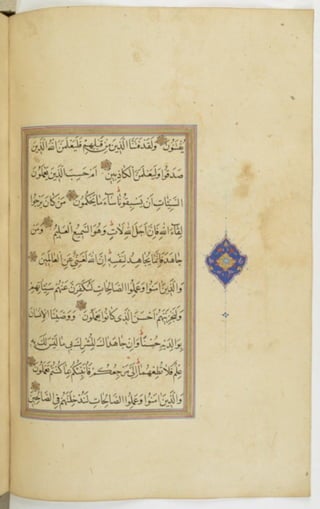 يفتنون ولقد فتنا الذين من قبلهم فليعلمن الله الذين
صدقوا وليعلمن الكاذبين ام حسب الذين يعملون
السيئات ان يسبقونا ساء ما يحكمون من كان يرجوا
لقاء الله فان اجل الله لآت وهو السميع العليم ومن
جاهد فانما يجاهد لنفسه ان الله لغني عن العالمين
والذين امنوا وعملوا الصالحات لنكفرن عنهم سيئاتهم
ولنجزينهم احسن الذي كانوا يعملون ووصينا الانسان
بوالديه حسنا وان جاهداك لتشرك بي ما ليس لك به
علم فلا تطعهما الي مرجعكم فانبئكم بما كنتم تعملون
والذين امنوا وعملوا الصالحات لندخلنهم في الصالحين